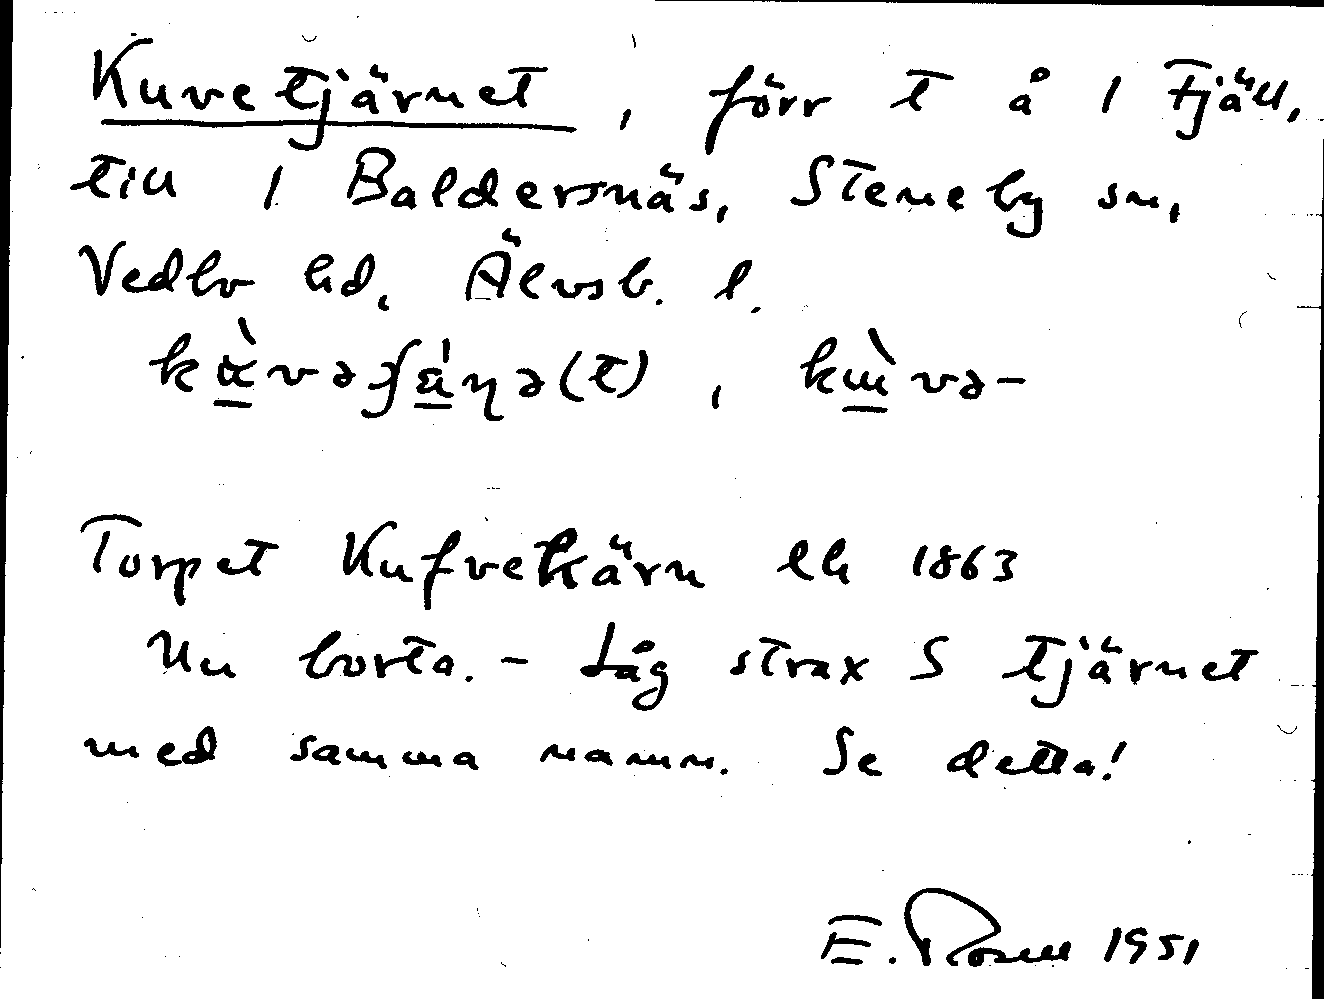 Kuvetjärnet, förr t å 1 Fjäll,
till 1 Baldersnäs, Steneby sn,
Vedbo hd, Älvsb. l.
Torpet Kufvekärn lh 1863
Nu borta. - Låg strax S tjärnet
med samma namn. Se detta!
E. Rosell 1951